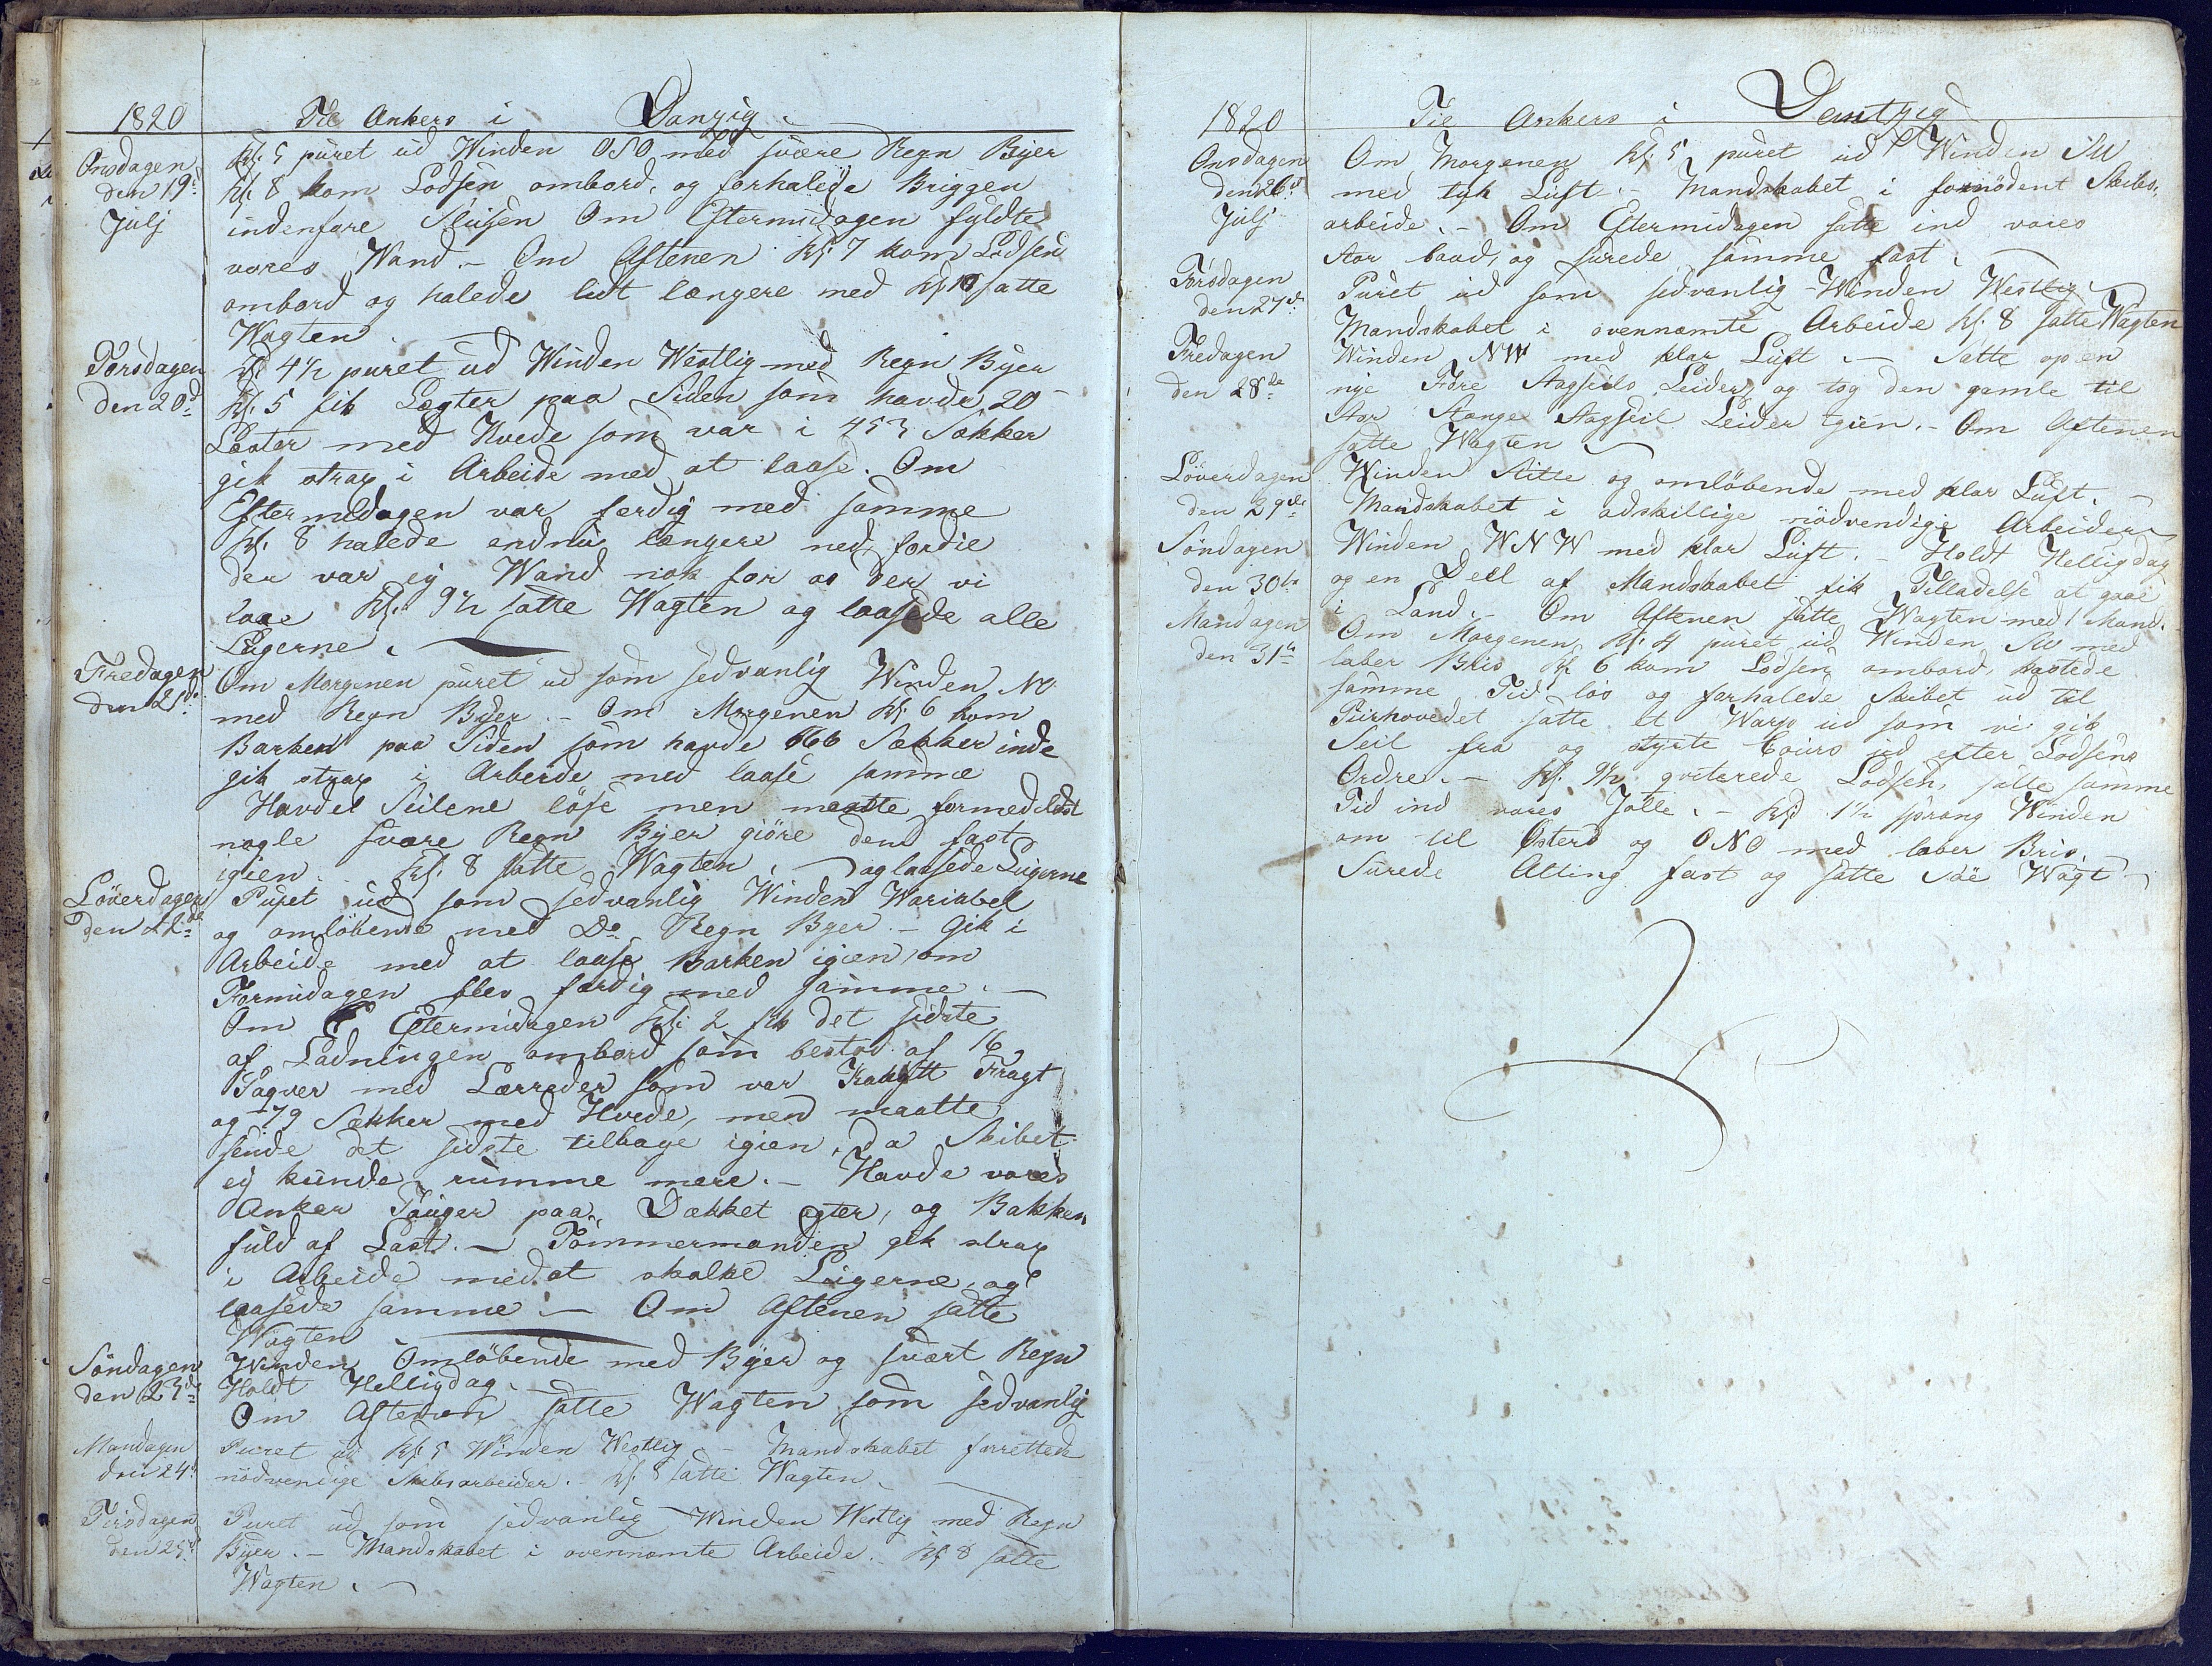 1820 Til Ankers i Danzig
Onsdagen den 19de Julj
Kl. 5 püret üd Winden OSO med svære Regn Byer
Kl. 8 kom Lodsen ombord, og forhalede Briggen
indenfore Slüisen Om Eftermidagen fyldte
vores Wand. – Om Aftenen Kl. 7 kom Lodsen
ombord og halede lidt længere ned Kl. 10 satte
Wagten
Torsdagen den 20de
Kl. 4½ püret üd Winden Westlig med Regn Byer
Kl. 5 fik Lægter paa Siden som havde 20
Læster med Hvede som var i 453 Sækker
gik strax i Arbeide med at laase. Om
Eftermidagen var færdig med samme
Kl. 8 halede endnü længere ned fordie
der var ej Wand nok for os der vi
laae Kl. 9½ satte Wagten og laasede alle
Lügerne.
Fredagen den 21de
Om Morgenen püret üd som sedvanlig Winden NO
med Regn Byer. – Om Morgenen Kl. 6 kom
Barken paa Siden som havde 666 Sækker inde
gik strax i Arbeide med laase samme
Havdet Seilene löse men maatte formedelst
nogle svære Regn Byer giöre dem fast
igien. Kl. 8 satte Wagten. og laasede Lügerne
Löverdagen den 22de
Püret üd som sedvanlig Winden Wariabel
og omlöbende med Do Regn Byer. – Gik i
Arbeide med at laase Barken igien, om
Formidagen blev færdig med samme. –
Om Eftermidagen Kl. 2 fik det sidste
af Ladningen ombord som bestod af 16
Pagver med Lærreder som var Kahytt Fragt
og 79 Sækker med Hvede, men maatte
sende det sidste tilbage igien, da Skibet
ej künde rümme mere. – Havde vores
Anker Touger paa Dækket agter, og Bakken
füld af Last. – Tömmermanden gik strax
i Arbeide med at skalke Lügerne, og
laasede samme. – Om Aftenen satte
Wagten
Söndagen den 23de
Winden Omlöbende med Byer og svært Regn
Holdt Helligdag.
Om Aftenen satte Wagten som sedvanlig
Mandagen den 24de
Püret üd Kl. 5 Winden Westlig. – Mandskabet forrettede
nödvendige Skibsarbeider. – Kl. 8 satte Wagten
Tirsdagen den 25de
Püret üd som sedvanlig Winden Westlig med Regn
Byer. – Mandskabet i ovennæmte Arbeide. Kl. 8 satte
Wagten.
1820 Til Ankers i Dantzig
Onsdagen den 26de Julj
Om Morgenen Kl. 5 püret üd Winden SW
med tyk Lüft. – Mandskabet i fornödent Skibs
arbeide. – Om Eftermidagen satte ind vores
Stor baad, og sürede samme fast.
Torsdagen den 27de
Püret üd som sedvanlig – Winden Westlig
Mandskabet i ovennæmte Arbeide Kl. 8 satte Wagten
Fredagen den 28de
Winden NW med klar Lüft. – Satte op en
nye Fore Stagseils Leider, og tog den gamle til
Stor Stænge Stagseil Leider igien. – Om Aftenen
satte Wagten
Löverdagen den 29de
Winden Stille og omlöbende med klar Lüft. –
Mandskabet i adskillige nödvendige Arbeider
Söndagen den 30te
Winden WNW med klar Lüft. – Holdt Helligdag
og en Deel af Mandskabet fik Tilladelse at gaae
i Land. – Om Aftenen satte Wagten med 1 Mand.
Mandagen den 31te
Om Morgenen Kl. 4 püret üd Winden SW med
laber Bris Kl. 6 kom Lodsen ombord, kastede
samme Tid lös og forhalede Skibet üd til
Piirhovedet satte et Warp üd som vi gik
Seil fra og styrte Coürs üd efter Lodsens
Ordre. – Kl. 9½ qviterede Lodsen, satte samme
Tid ind vores Jolle. – Kl. 1½ sprang Winden
om til Osters og ONO med laber Bris.
Sürede Alting fast og satte Söe Wagt –